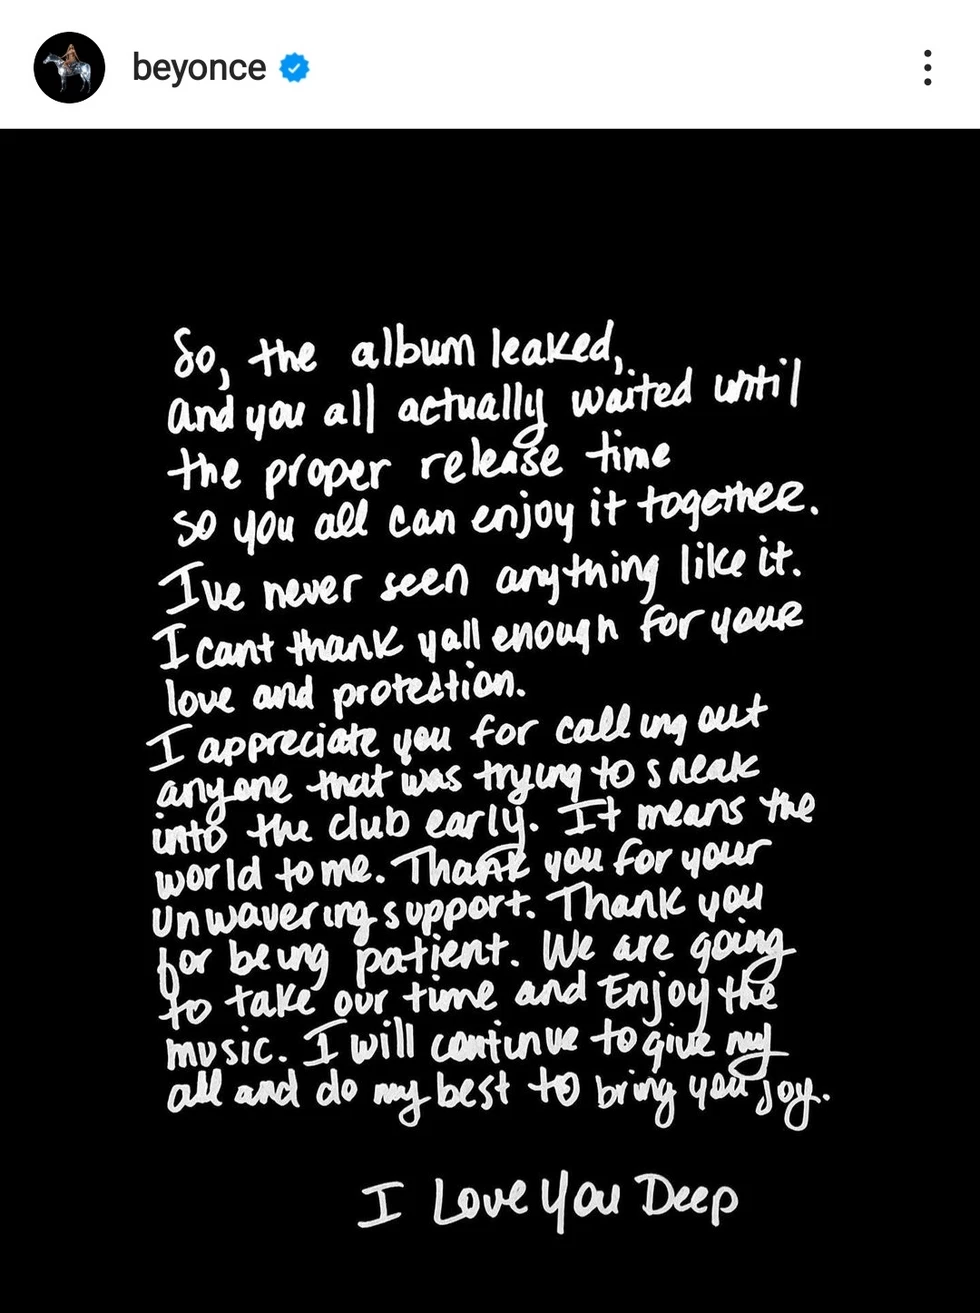 beyonce
So, the album leaked,
and you all actually waited until
the proper release time
so you all can enjoy it together.
I've never seen anything like it.
I cant thank yall enough for your
love and protection.
I appreciate you for calling out
anyone that was trying to sneak
into the club early. It means the
world to me. Thank you for your
unwavering support. Thank you
for being patient. We are going
to take our time and Enjoy the
music. I will continue to give my
all and do my best to bring you joy.
I Love You Deep